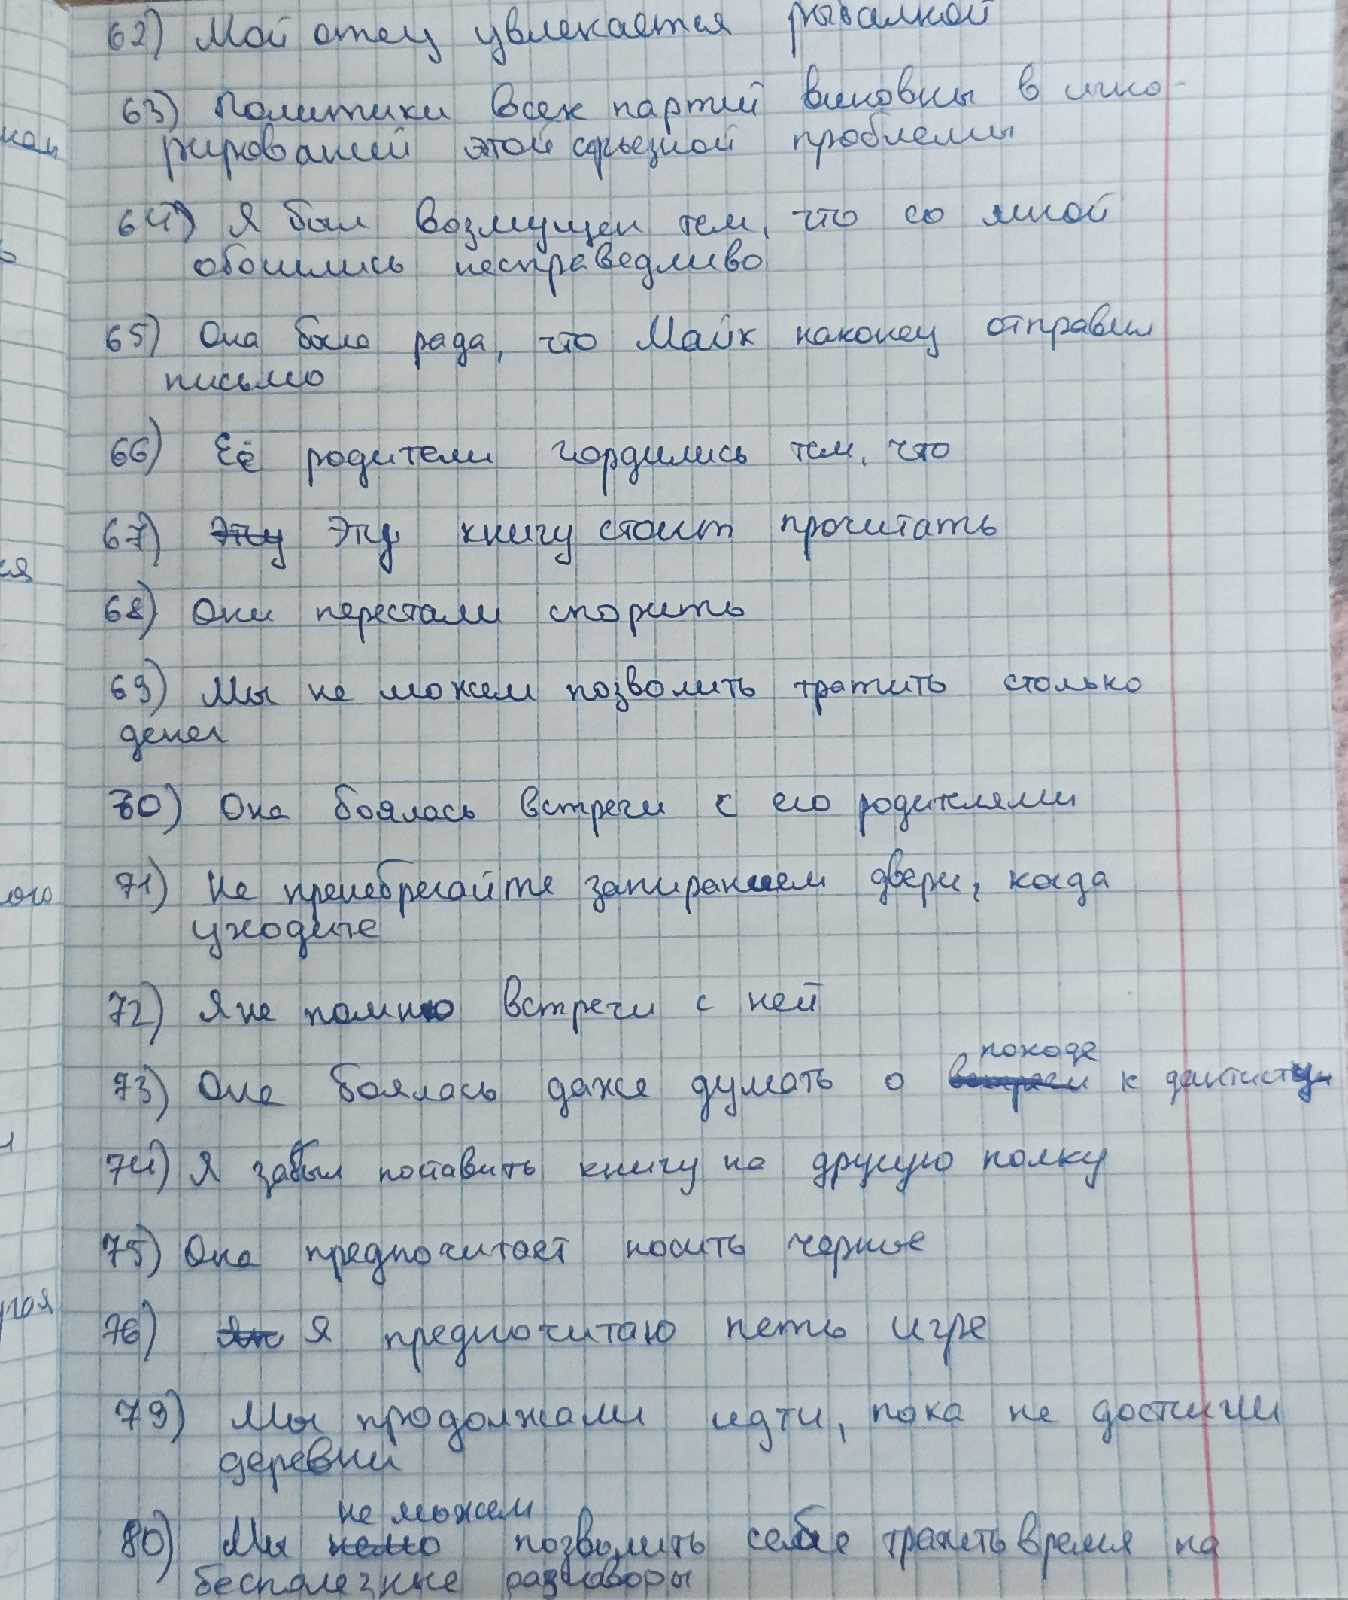 62) Мой отец увлекается рыбалкой
63) Политики всех партий виновны в игно-
рировании этой серьезной проблемы
64) Я был возмущен тем, что со мной
обошлись несправедливо
65) Она была рада, что Майк наконец отправил
письмо
66) Её родители гордились тем, что
67) Эту Эту книгу стоит прочитать
68) Они перестали спорить
69) Мы не можем позволить тратить столько
денег
70) Она боялась встречи с его родителями
71) Не пренебрегайте запиранием двери, когда
уходите
72) Я не помню встречи с ней
походе
73) Она боялась даже думать о встречи к дантисту
74) Я забыл поставить книгу на другую полку
75) Она предпочитает носить черное
76) Я предпочитаю петь игре
79) Мы продолжали идти, пока не достигли
деревни
не можем
80) Мы позволить себе тратить время на
бесполезные разговоры